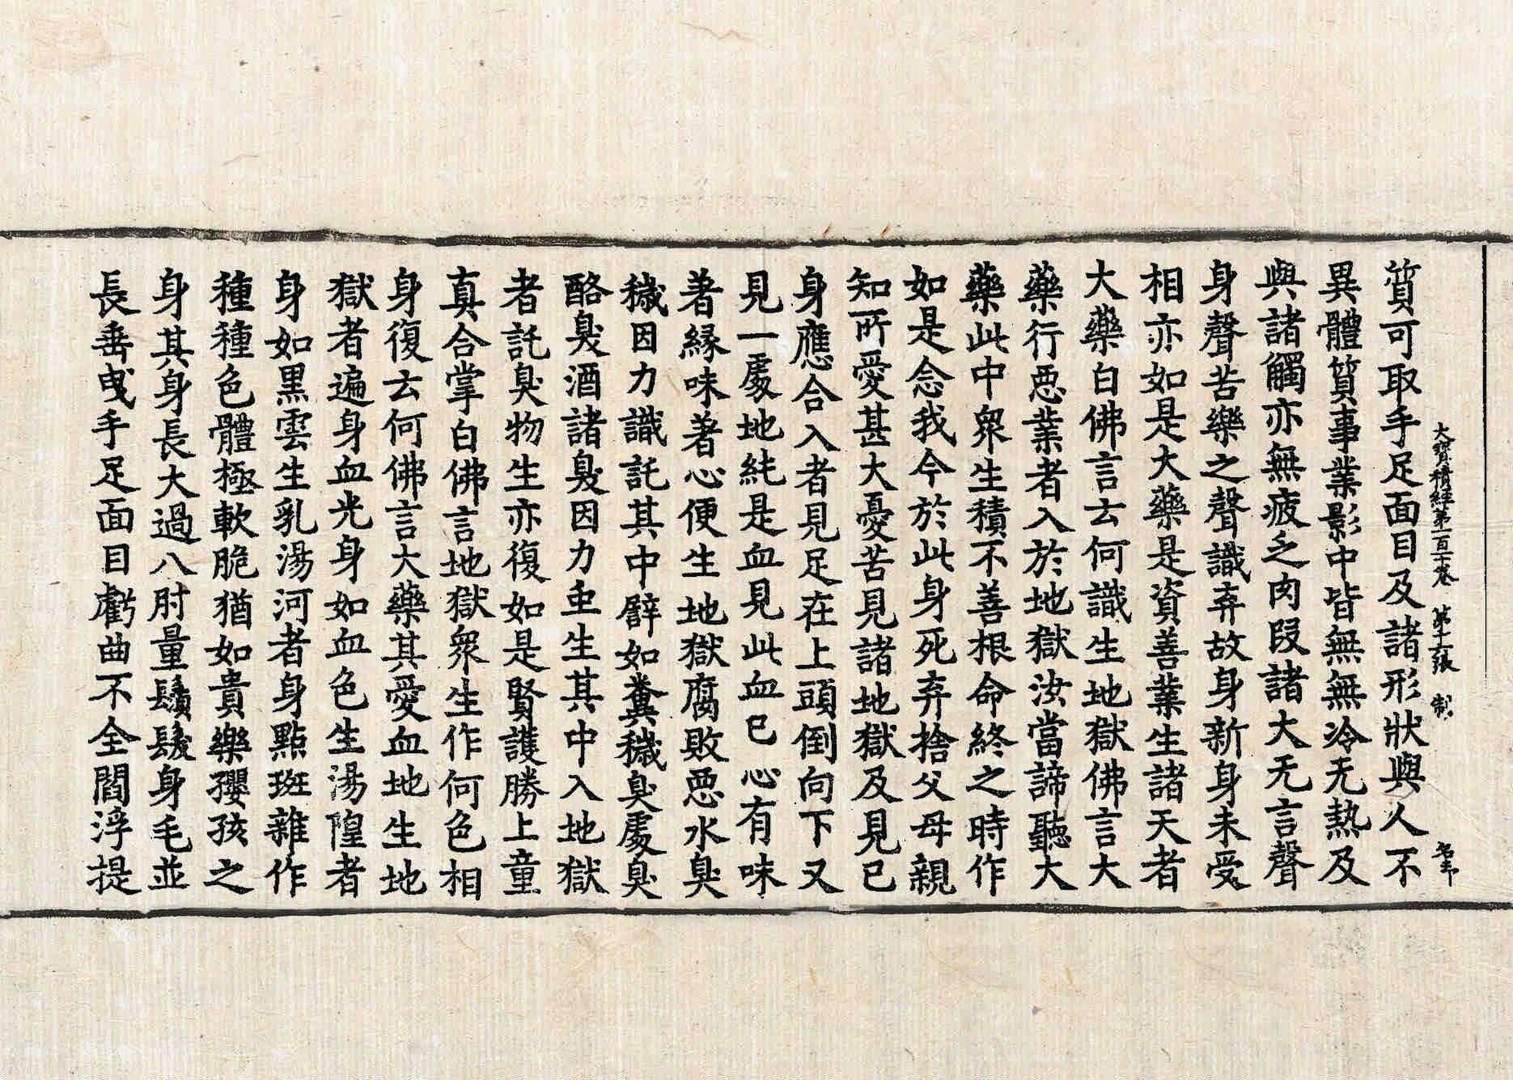 大寶積經第一百十卷 第十六張 制
質可取手足面目及諸形狀與人不
異體質事業影中皆無無冷无熱及
與諸觸亦無疲乏肉段諸大无言聲
身聲苦樂之聲識弃故身新身未受
相亦如是大藥是資善業生諸天者
大藥白佛言云何識生地獄佛言大
藥行悪業者入於地獄汝當諦聽大
藥此中衆生積不善根命終之時作
如是念我今於此身死弃捨父母親
知所愛甚大憂苦見諸地獄及見已
身應合入者見足在上頭倒向下又
見一處地純是血見此血已心有味
著緣味著心便生地獄腐敗悪水臭
穢因力識託其中譬如糞穢臭處臭
酪臭酒諸臭因力虫生其中入地獄
者託臭物生亦復如是賢護勝上童
真合掌白佛言地獄衆生作何色相
身復云何佛言大藥其愛血地生地
獄者遍身血光身如血色生湯隍者
身如黑雲生乳湯河者身點斑雜作
種種色體極軟脆猶如貴樂孾孩之
身其身長大過八肘量鬚髮身毛並
長垂曳手足面目虧曲不全閻浮提